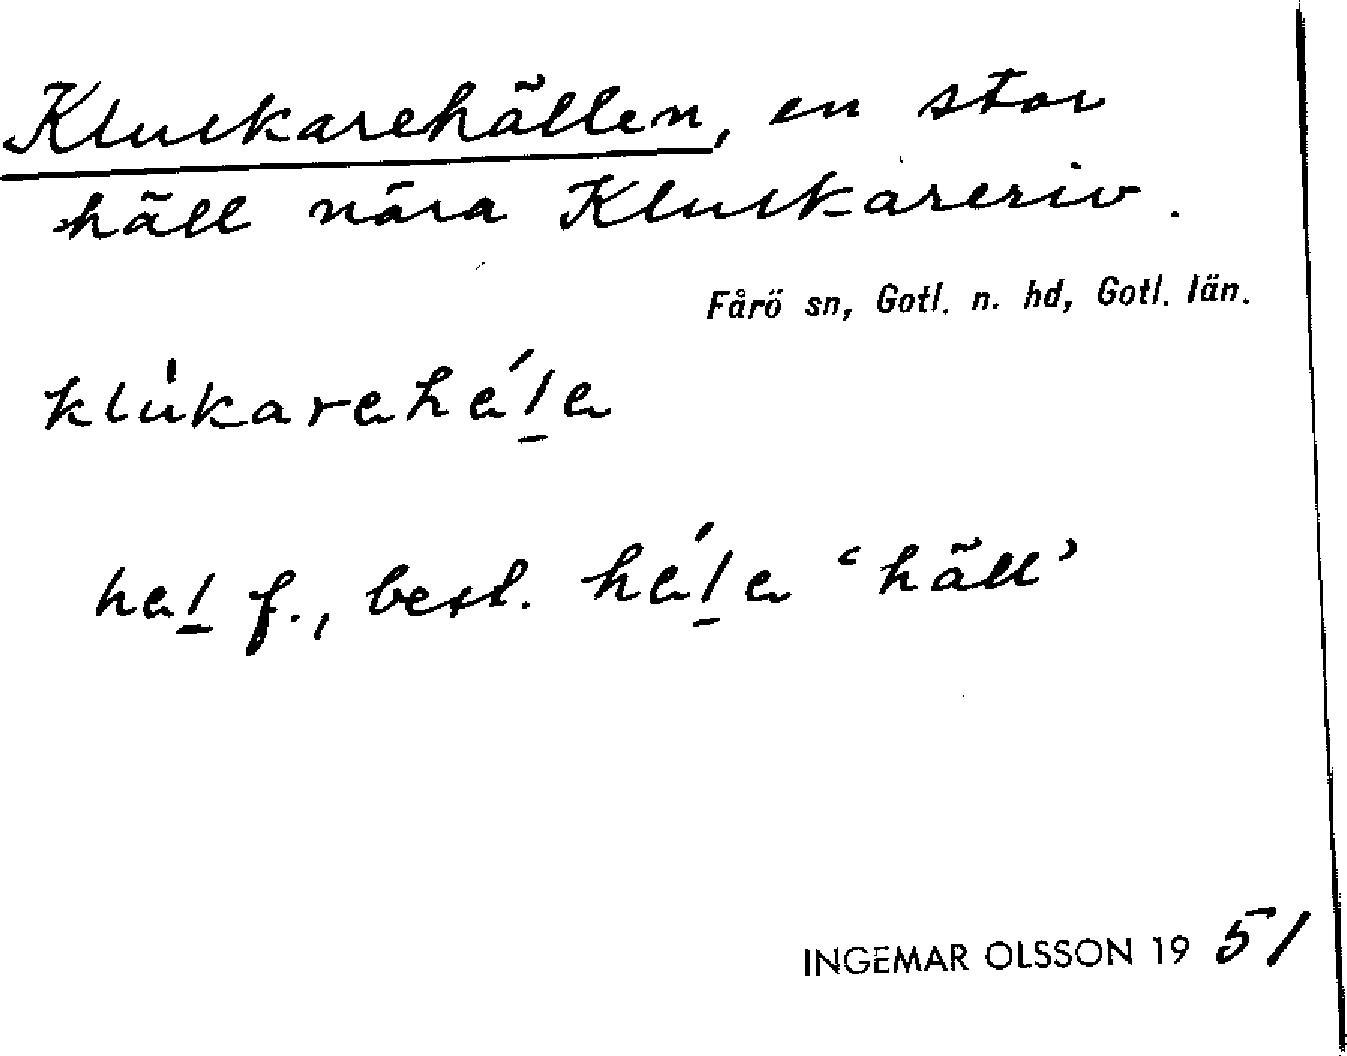 Kluckarehällen, en stor
häll nära Kluckareriv.
Fårö sn, Gotl. n. hd, Gotl. län.
klu̍karehé̱la
hel̲ f., best. hél̲a ‘häll’
INGEMAR OLSSON 19 51